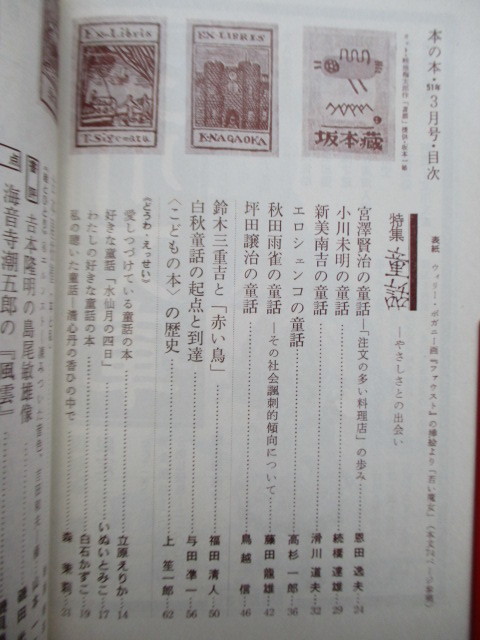 本の本・51年3月号・目次
表紙 ウィリー・ポガニー画『ファウスト』の挿絵より「若い魔女」（本文74ページ参照）
EX LIBRIS
坂本蔵
EX LIBRIS
K.NAGAOKA
Ex-Libris
T.Sigematu
特集 童話
―やさしさとの出会い
宮澤賢治の童話―「注文の多い料理店」の歩み 恩田逸夫 24
小川未明の童話 続橋達雄 29
新美南吉の童話 滑川道夫 32
エロシェンコの童話 高杉一郎 36
秋田雨雀の童話―その社会諷刺的傾向について 藤田龍雄 42
坪田譲治の童話 鳥越信 46
鈴木三重吉と「赤い鳥」 福田清人 50
白秋童話の起点と到達 与田凖一 56
〈こどもの本〉の歴史 上笙一郎 62
《どうわ・えっせい》
愛しつづけている童話の本 立原えりか 14
好きな童話「水仙月の四日」 いぬいとみこ 17
わたしの好きな童話の本 白石かずこ 19
私の聴いた童話―清心丹の香ひの中で 森茉莉 21
書評 吉本隆明の島尾敏雄像
点 海音寺潮五郎の『風雲』